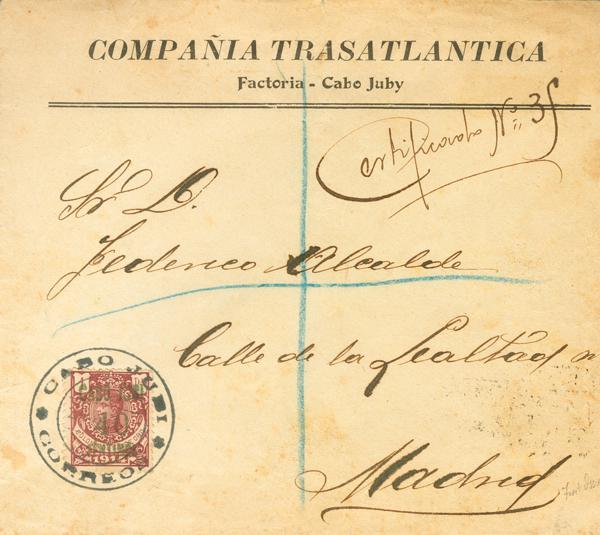 COMPAÑIA TRASATLANTICA
Factoria - Cabo Juby
Certificado No. 35
Sr D.
Federico Alcalde
Calle de la Lealtad n
Madrid
CABO JUBI
CABO JUBI
40
CENTIMOS
CORREOS